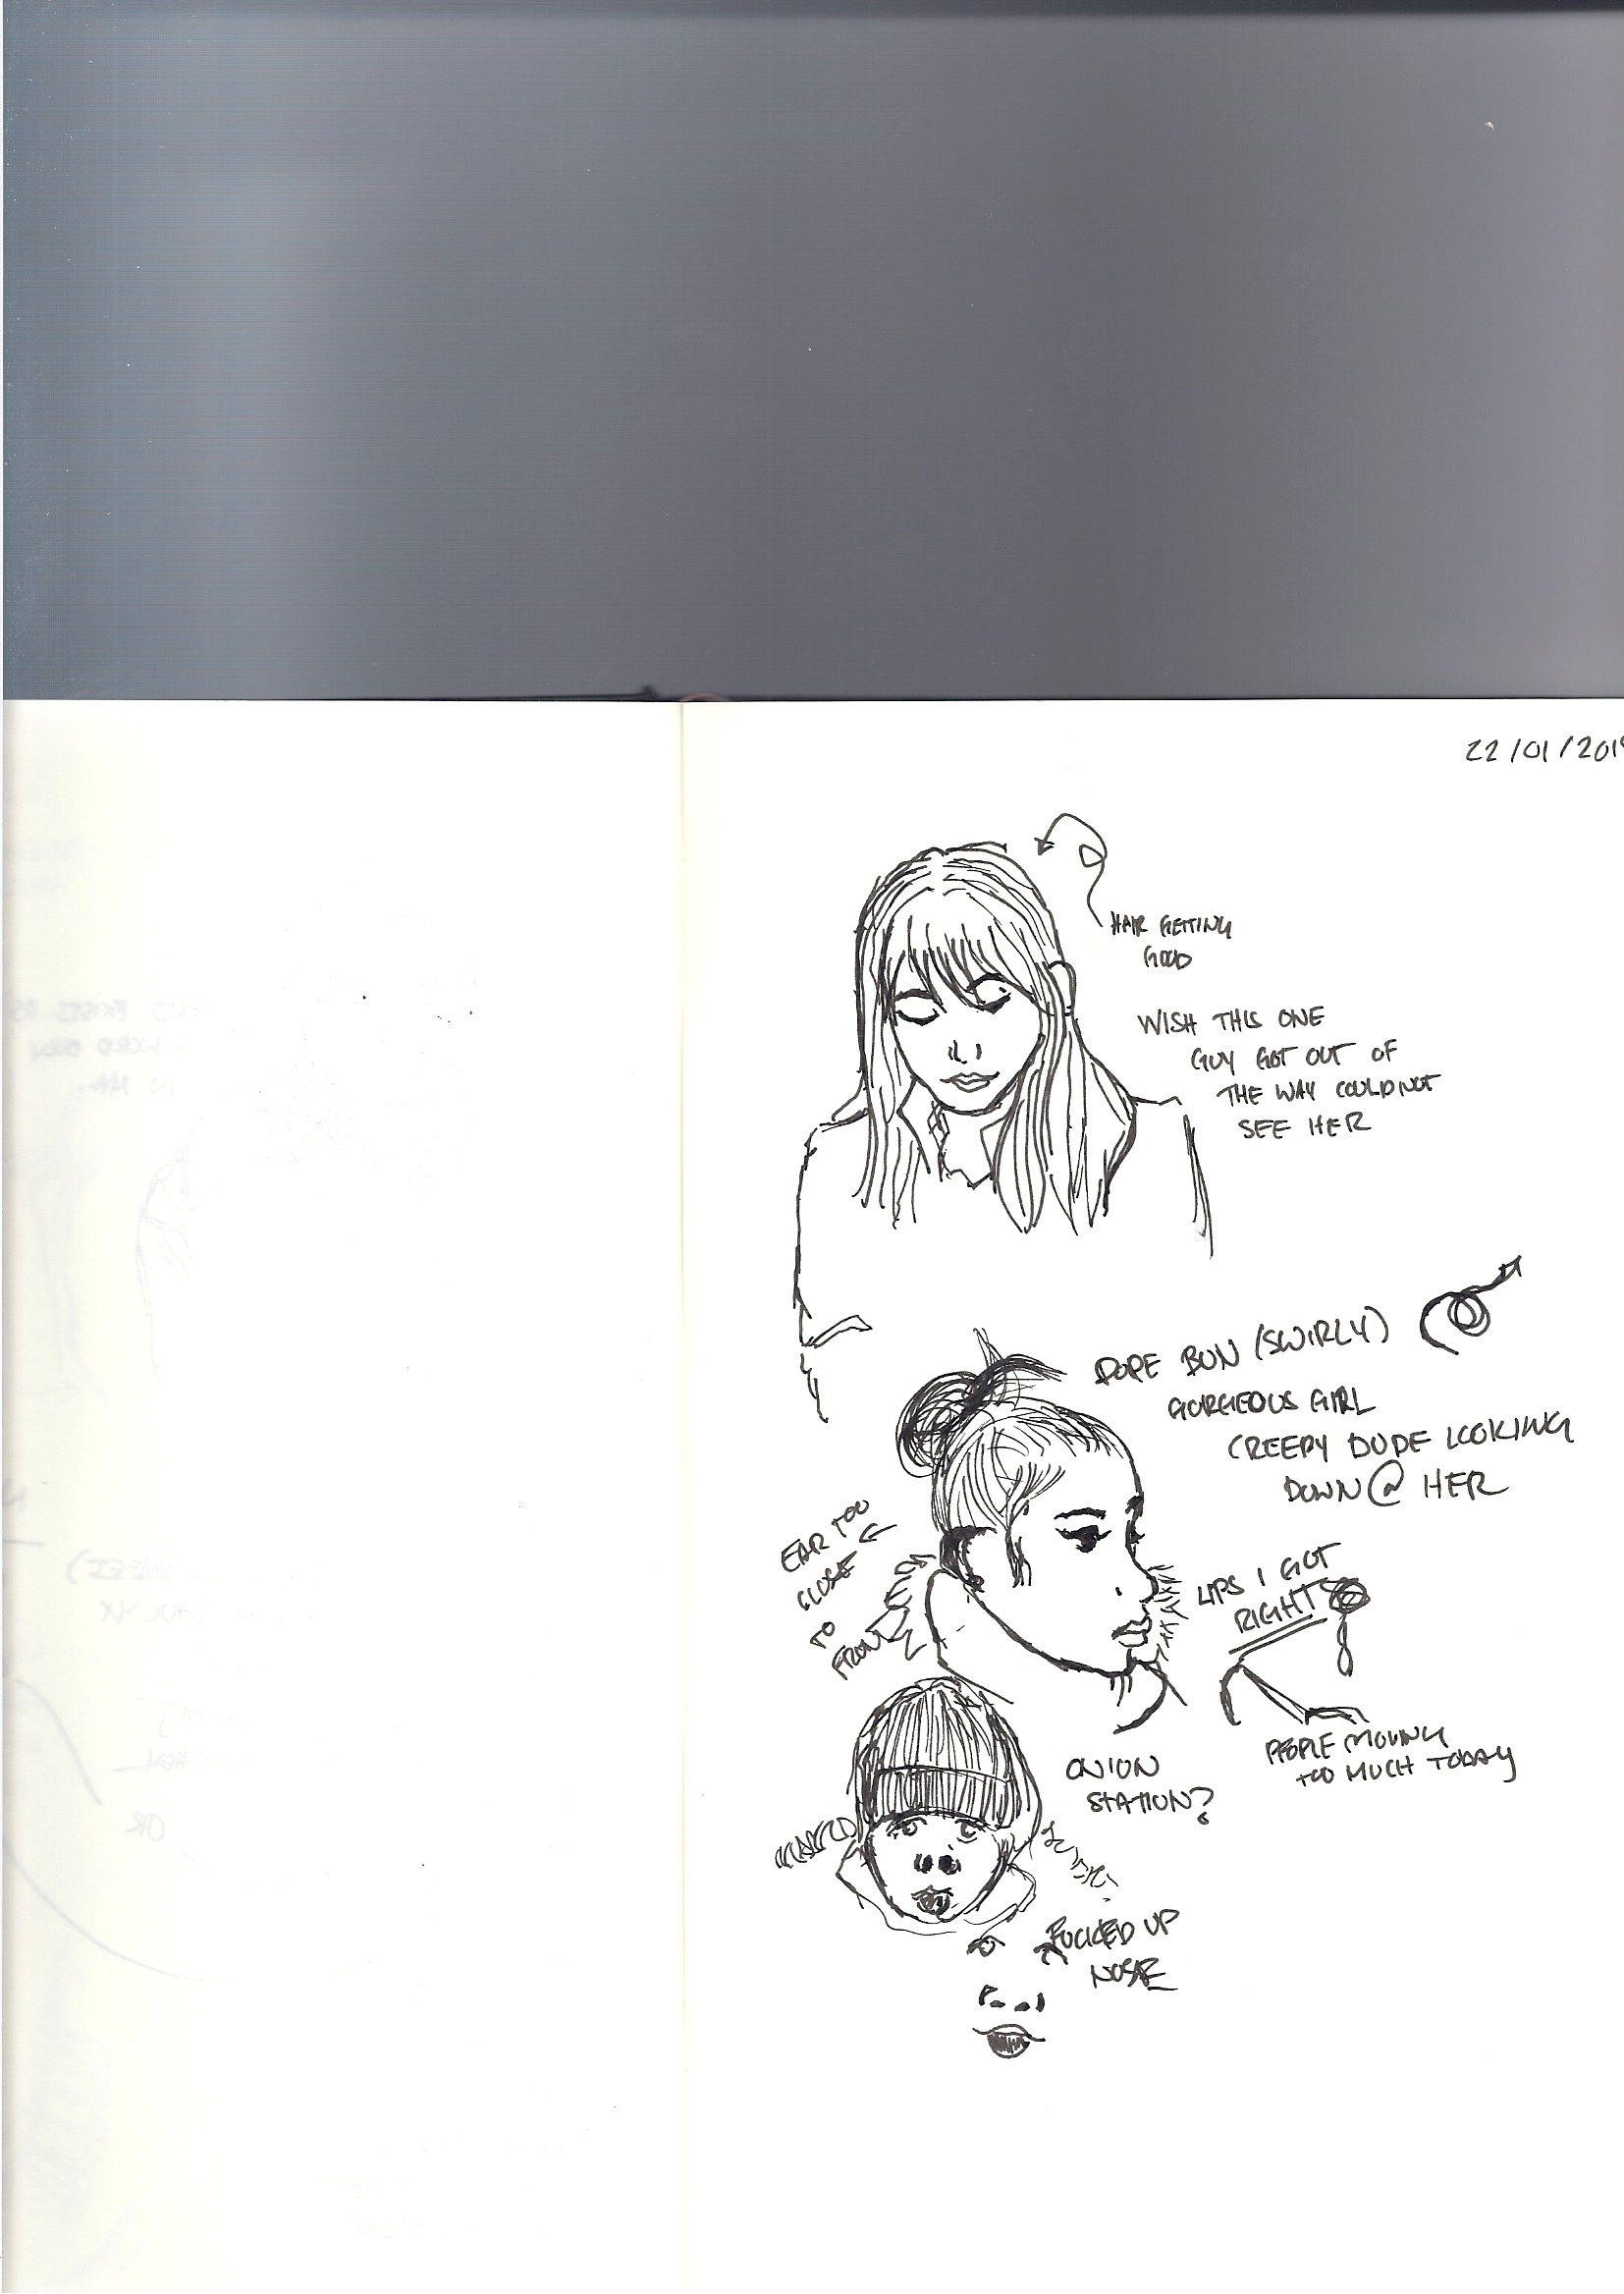 22/01/201
HAIR GETTING
GOOD
WISH THIS ONE
GUY GOT OUT OF
THE WAY COULD NOT
SEE HER
DOPE BUN (SWIRLY)
GORGEOUS GIRL
CREEPY DUDE LOOKING
DOWN @ HER
EAR TOO
CLOSE
TO
FRONT
LIPS I GOT
RIGHT
PEOPLE MOVING
TOO MUCH TODAY
ONION
STATION?
FUCKED UP
NOSE